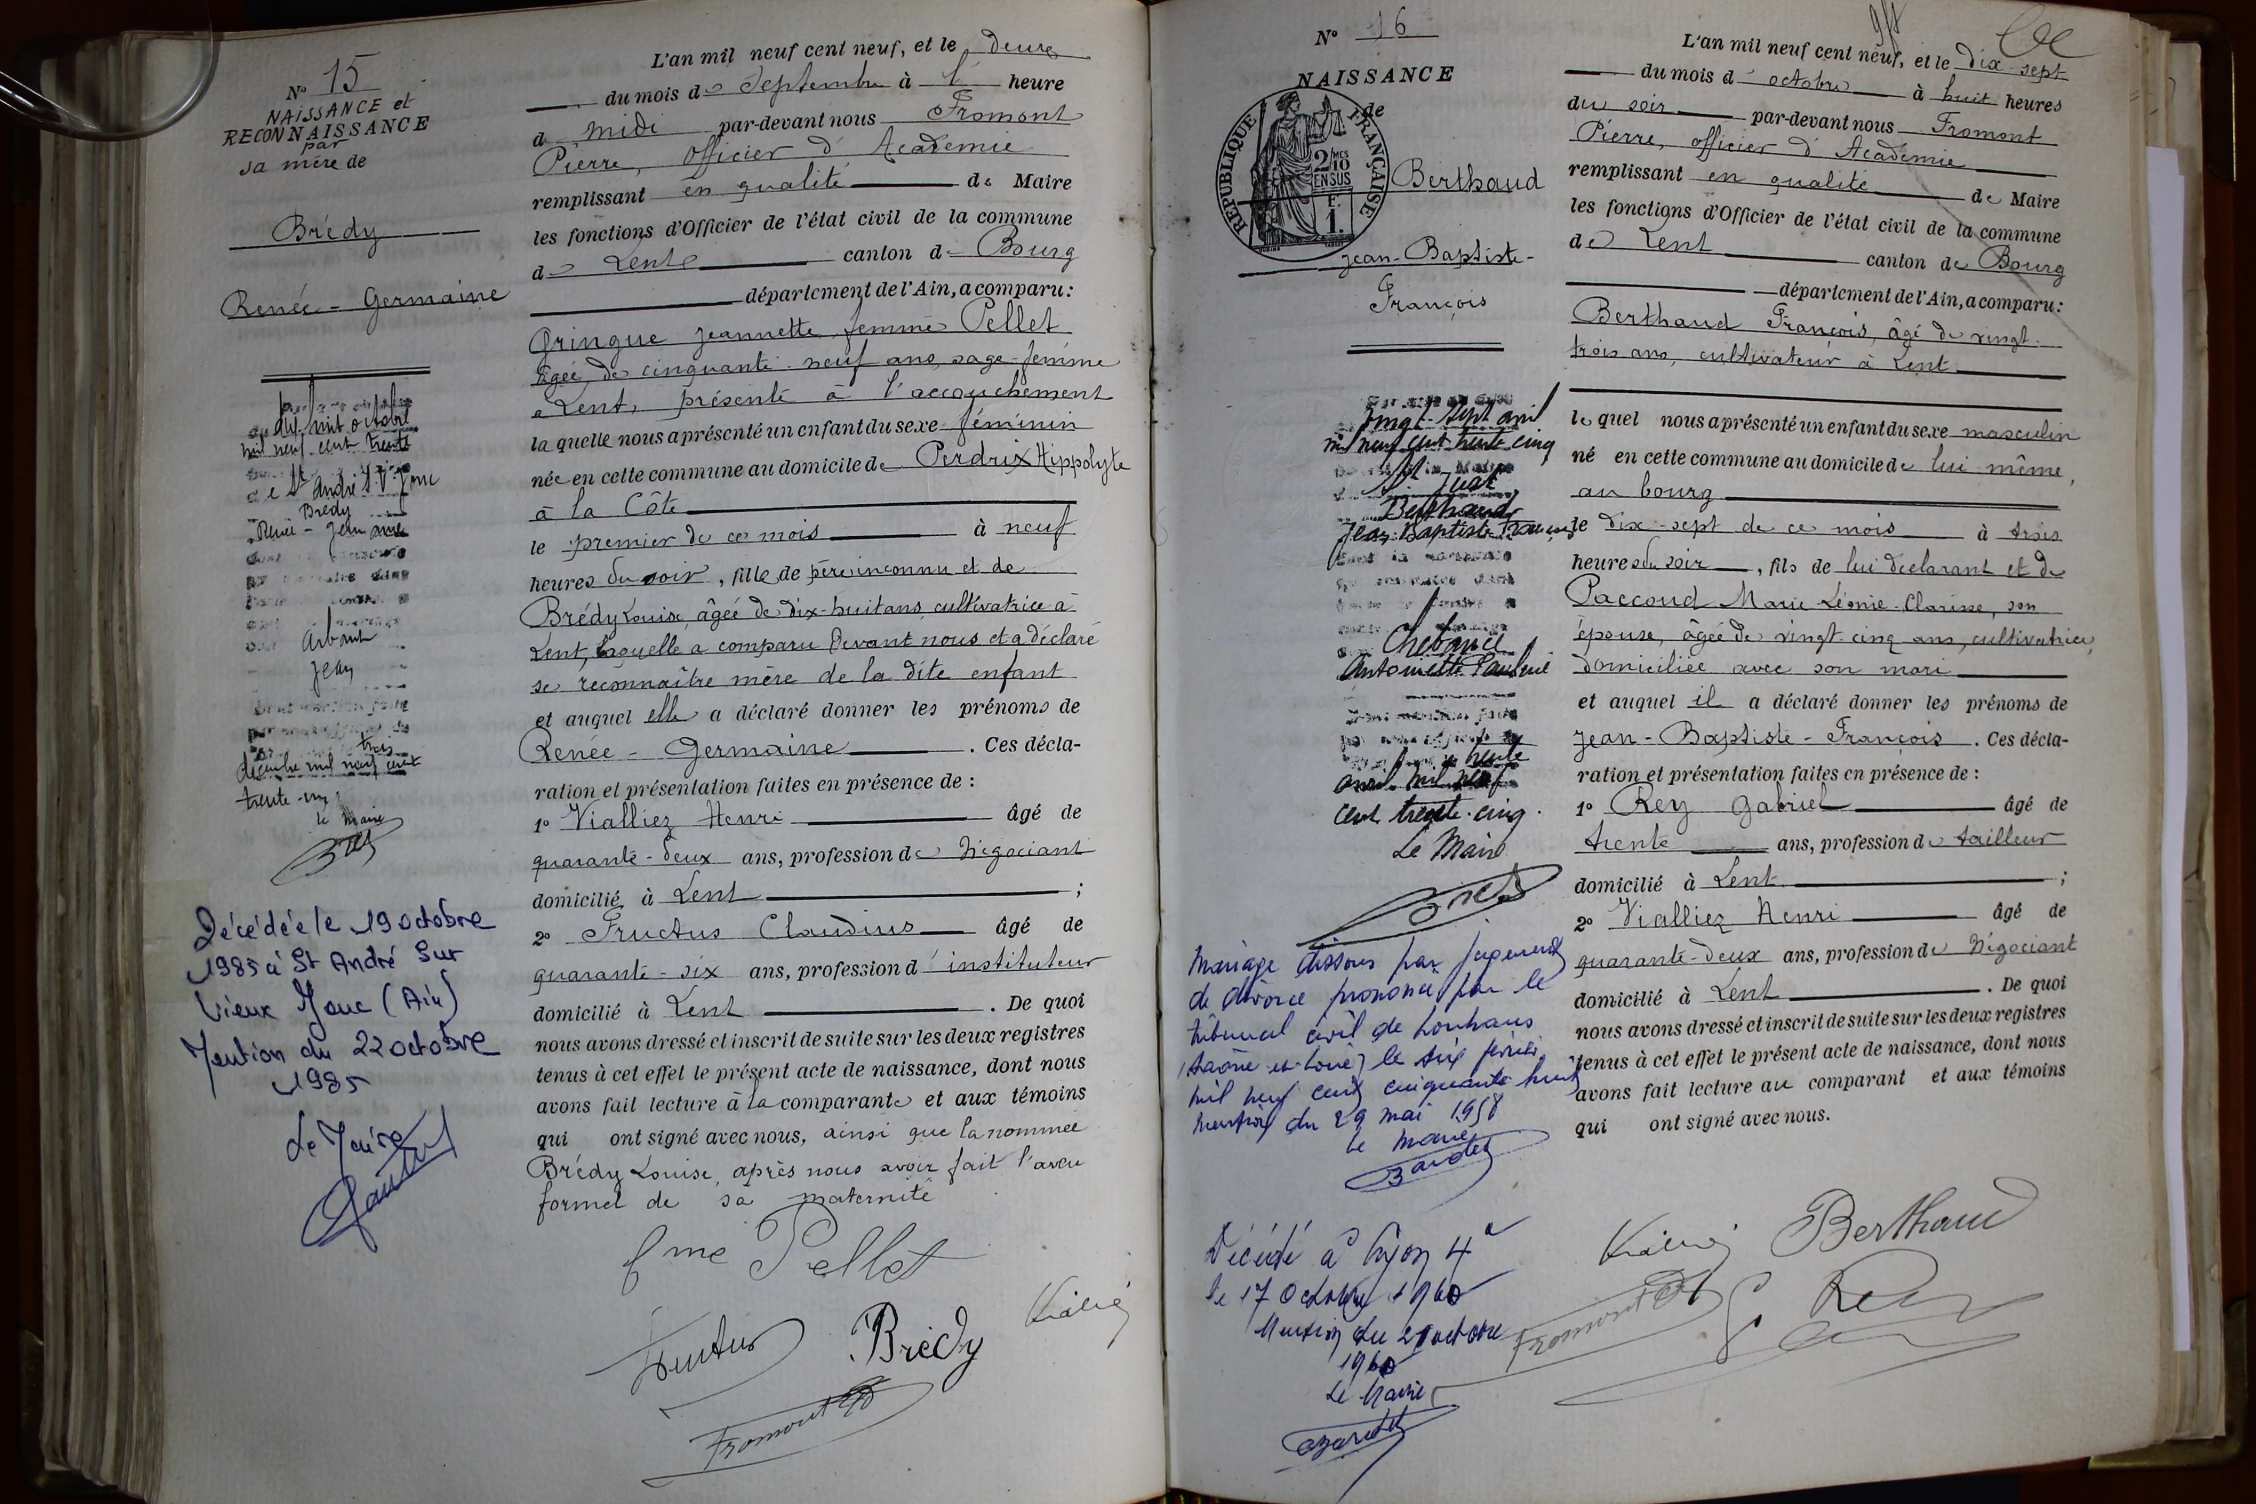 N° 15
NAISSANCE et
RECONNAISSANCE
par
sa mère de
Brédy
Renée - Germaine
dix huit octobre
mil neuf cent trente
St André s. V. Jonc
Brédy
Renée - Germaine
Arbant
Jean
trois
décembre mil neuf cent
trente-un
le maire
Décédée le 19 octobre
1985 à St André Sur
Vieux Jonc (Ain)
Mention du 22 octobre
1985
Le Maire
L'an mil neuf cent neuf, et le deux
du mois de Septembre à l' heure
de midi par-devant nous Fromont
Pierre, Officier d'Académie
remplissant en qualité de Maire
les fonctions d'Officier de l'état civil de la commune
de Lent canton de Bourg
département de l'Ain, a comparu:
Gringue Jeannette femme Pellet
âgée de cinquante-neuf ans, sage-femme
à Lent, présente à l'accouchement
la quelle nous a présenté un enfant du sexe féminin
née en cette commune au domicile de Perdrix Hippolyte
à la Côte
le premier de ce mois à neuf
heures du soir, fille de père inconnu et de
Brédy Louise, âgée de dix-huit ans, cultivatrice à
Lent, laquelle a comparu devant nous et a déclaré
se reconnaître mère de la dite enfant
et auquel elle a déclaré donner les prénoms de
Renée - Germaine. Ces décla-
ration et présentation faites en présence de :
1° Vialliez Henri âgé de
quarante-deux ans, profession de Négociant
domicilié à Lent ;
2° Fructus Claudius âgé de
quarante-six ans, profession d'instituteur
domicilié à Lent. De quoi
nous avons dressé et inscrit de suite sur les deux registres
tenus à cet effet le présent acte de naissance, dont nous
avons fait lecture à la comparante et aux témoins
qui ont signé avec nous, ainsi que la nommée
Brédy Louise, après nous avoir fait l'aveu
formel de sa maternité
fme Pellet
Fructus Brédy Viallie
Fromont
N° 16
NAISSANCE
de
REPUBLIQUE FRANÇAISE
2/10 MES
EN SUS
F.
1.
Berthaud
Jean-Baptiste-
François
vingt-sept avril
mil neuf cent trente cinq
St Just
Berthaud
Jean-Baptiste François
Antoinette Pauline
trente
avril mil neuf
cent trente-cinq.
Le Maire
Mariage dissous par jugement
de divorce prononcé par le
tribunal civil de Louhans
(Saône et Loire) le six février
mil neuf cent cinquante huit
Mention du 29 mai 1958
Le Maire
Décédé à Lyon 4e
le 17 Octobre 1960
Mention du 21 octobre
1960
Le Maire
L'an mil neuf cent neuf, et le dix-sept
du mois d'octobre à huit heures
du soir par-devant nous Fromont
Pierre, officier d'Académie
remplissant en qualité de Maire
les fonctions d'Officier de l'état civil de la commune
de Lent canton de Bourg
département de l'Ain, a comparu:
Berthaud François, âgé de vingt-
trois ans, cultivateur à Lent
le quel nous a présenté un enfant du sexe masculin
né en cette commune au domicile de lui même,
au bourg
le dix-sept de ce mois à trois
heures du soir, fils de lui déclarant et de
Paccoud Marie-Léonie-Clarisse, son
épouse, âgée de vingt-cinq ans, cultivatrice,
domiciliée avec son mari
et auquel il a déclaré donner les prénoms de
Jean-Baptiste-François. Ces décla-
ration et présentation faites en présence de :
1° Rey Gabriel âgé de
trente ans, profession de tailleur
domicilié à Lent ;
2° Vialliez Henri âgé de
quarante-deux ans, profession de Négociant
domicilié à Lent. De quoi
nous avons dressé et inscrit de suite sur les deux registres
tenus à cet effet le présent acte de naissance, dont nous
avons fait lecture au comparant et aux témoins
qui ont signé avec nous.
Berthaud
Fromont G Rey